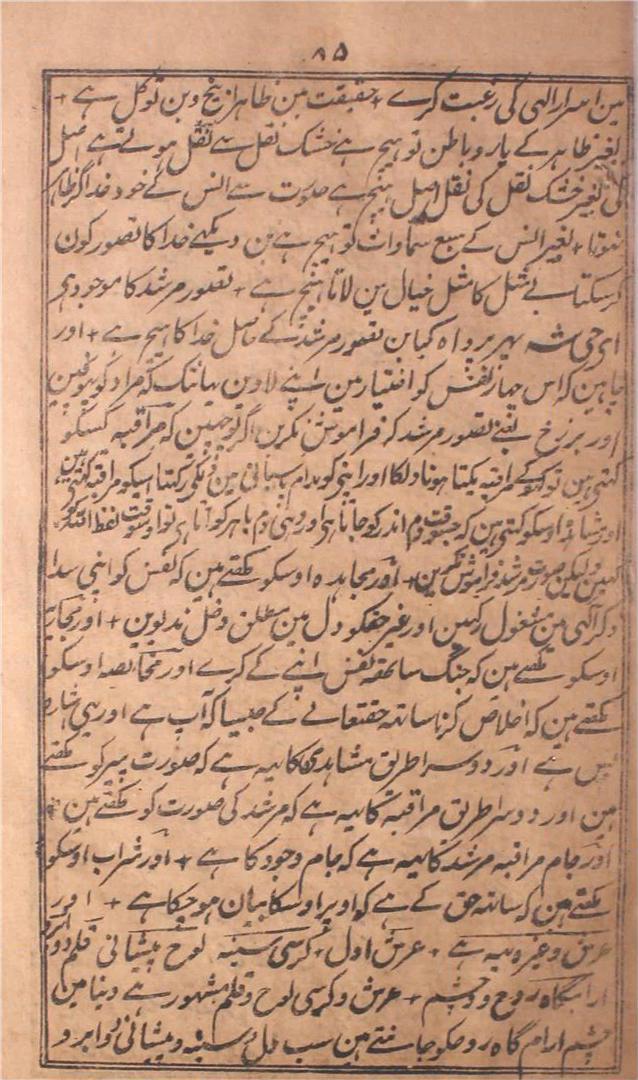 ۸۵
مین اسرار الٰہی کی رغبت کرے + حقیقت مین ظاہر از بیخ و بن تو کل ہے +
بغیر ظاہر کے یار و باطن تو ہیچ ہے خشک نقل سے نقل ہوتے ہے اصل
کی بغیر خشک نقل کی نقل اصل ہیچ ہے صورت سے انس کے خود خدا گر ظاہر
نہوتا + بغیر انس کے سبع سماوات کو ہیچ ہے بن دیکہے خدا کا تصور کون
کر سکتا بے مثل کا مثل خیال مین لانا ہیچ ہے + تصور مرشد کا موجود ہر
ای جی شہ پیر پرواہ کیا بن تصور مرشد کے حاصل خدا کا ہیچ ہے + اور
چاہین کہ اس جہاز نفس کو اختیار مین اپنے لاوین یہانتک کہ مراد کو پہونچین
اور برزخ یعنے تصور مرشد کہ فراموش نکرین اگر پوچہین کہ مراقبہ کسکو
کہتی ہین تو کہو کے مراقبہ یکتا ہونا دلکا اور اپنی کو مدام پاسبانی مین رکہتا ہیکو مراقبہ کہتی ہین
اور مشاہدہ اوسکو کہتی ہین کہ جسوقت دم اندر کو جاتا ہی اور وہی دم باہر کو آتا ہی تو اوسوقت لفظ اللہ کو
کہین ولیکن صورت مرشد فراموش نکرین + اور مجاہدہ اوسکو کہتے ہین کہ نفس کو اپنی سدا
ذکر الٰہی مین مشغول رکہین اور غیر حقکو دل مین مطلق دخل ندیوین + اور محاربہ
اوسکو کہتے ہین کہ جنگ ساتھہ نفس اپنے کے کرے اور مخالصہ اوسکو
کہتے ہین کہ اخلاص کرنا ساتھہ حقتعالے کے جیسا کہ آپ ہے اور یہی اشارہ
بس ہے اور دوسرا طریق مشاہدی کا یہہ ہے کہ صورت پیر کو کہتے
ہین اور دوسرا طریق مراقبہ کا یہہ ہے کہ مرشد کی صورت کو کہتے ہین +
اور جام مراقبہ مرشد کا یہہ ہے کہ جام وجود کا ہے + اور شراب اوسکو
کہتے ہین کہ ساتھہ حق کے ہے کہ اوپر اوسکا بیان ہو چکا ہے + اور
عرش وغیرہ یہہ ہے + عرش اول، کرسی سینہ لوح پیشانی قلم دو ابرو
آرامگاہ روح دو چشم + عرش و کرسی لوح و قلم مشہور ہے دنیا مین
چشم ارام گاہ روحکو جانتے ہین سب دل سینہ و پیشانی و ابرو